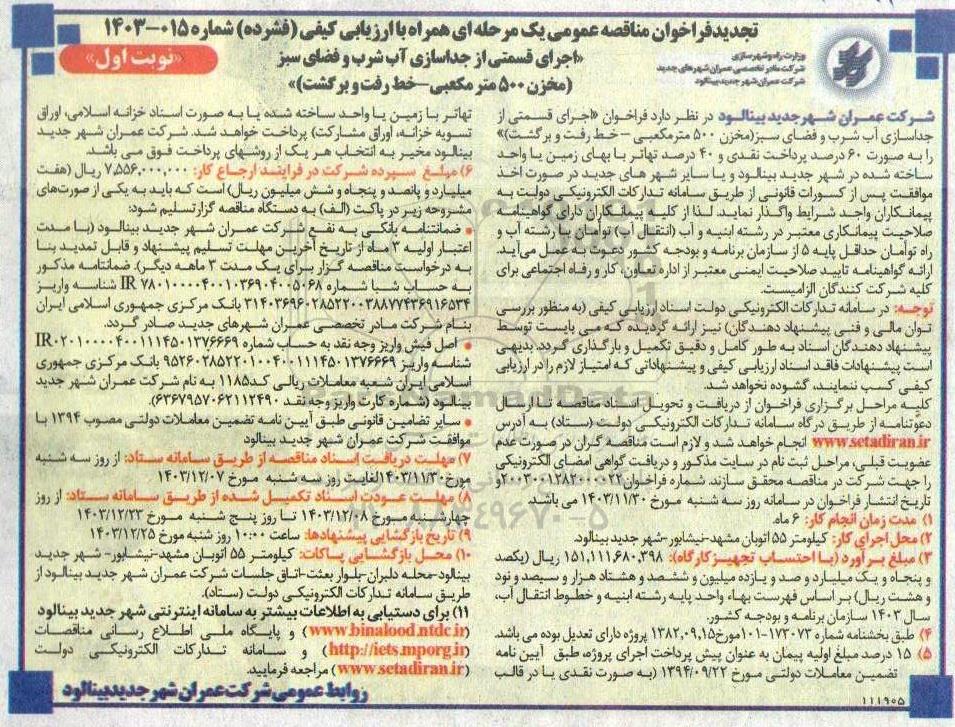 تجدیدفراخوان مناقصه عمومی یک مرحله ای همراه با ارزیابی کیفی (فشرده) شماره ۰۱۵-۱۴۰۳
«اجرای قسمتی از جداسازی آب شرب و فضای سبز
(مخزن ۵۰۰ متر مکعبی-خط رفت و برگشت)»
«نوبت اول»
وزارت راه و شهرسازی
شرکت مادر تخصصی عمران شهرهای جدید
شرکت عمران شهر جدید بینالود
شرکت عمران شهر جدید بینالود در نظر دارد فراخوان «اجرای قسمتی از
جداسازی آب شرب و فضای سبز(مخزن ۵۰۰ مترمکعبی – خط رفت و برگشت)»
را به صورت ۶۰ درصد پرداخت نقدی و ۴۰ درصد تهاتر با بهای زمین یا واحد
ساخته شده در شهر جدید بینالود و یا سایر شهر های جدید در صورت اخذ
موافقت پس از کسورات قانونی از طریق سامانه تدارکات الکترونیکی دولت به
پیمانکاران واجد شرایط واگذار نماید. لذا از کلیه پیمانکاران دارای گواهینامه
صلاحیت پیمانکاری معتبر در رشته ابنیه و آب (انتقال آب) توأمان یا رشته آب و
راه توأمان حداقل پایه ۵ از سازمان برنامه و بودجه کشور دعوت به عمل می‌آید.
ارائه گواهینامه تایید صلاحیت ایمنی معتبر از اداره تعاون، کار و رفاه اجتماعی برای
کلیه شرکت کنندگان الزامیست.
توجه: در سامانه تدارکات الکترونیکی دولت اسناد ارزیابی کیفی (به منظور بررسی
توان مالی و فنی پیشنهاد دهندگان) نیز ارائه گردیده که می بایست توسط
پیشنهاد دهندگان اسناد به طور کامل و دقیق تکمیل و بارگذاری گردد. بدیهی
است پیشنهادات فاقد اسناد ارزیابی کیفی و پیشنهاداتی که امتیاز لازم را در ارزیابی
کیفی کسب ننمایند، گشوده نخواهد شد.
کلیه مراحل برگزاری فراخوان از دریافت و تحویل اسناد مناقصه تا ارسال
دعوتنامه از طریق درگاه سامانه تدارکات الکترونیکی دولت (ستاد) به آدرس
www.setadiran.ir انجام خواهد شد و لازم است مناقصه گران در صورت عدم
عضویت قبلی، مراحل ثبت نام در سایت مذکور و دریافت گواهی امضای الکترونیکی
را جهت شرکت در مناقصه محقق سازند. شماره فراخوان
تاریخ انتشار فراخوان در سامانه روز سه شنبه مورخ ۱۴۰۳/۱۱/۳۰ می باشد.
۱) مدت زمان انجام کار: ۶ ماه.
۲) محل اجرای کار: کیلومتر ۵۵ اتوبان مشهد-نیشابور -شهر جدید بینالود.
۳) مبلغ برآورد (با احتساب تجهیز کارگاه): ۱۵۱,۱۱۱,۶۸۰,۳۹۸ ریال (یکصد
و پنجاه و یک میلیارد و صد و یازده میلیون و ششصد و هشتاد هزار و سیصد و نود
و هشت ریال) بر اساس فهرست بهاء واحد پایه رشته ابنیه و خطوط انتقال آب،
سال ۱۴۰۳ سازمان برنامه و بودجه کشور.
۴) طبق بخشنامه شماره ۱۷۳۰۷۳-۱۰۱مورخ۱۳۸۲,۰۹,۱۵ پروژه دارای تعدیل بوده می باشد.
۵) ۱۵ درصد مبلغ اولیه پیمان به عنوان پیش پرداخت اجرای پروژه، طبق آیین نامه
تضمین معاملات دولتی مورخ ۱۳۹۴/۰۹/۲۲ (به صورت نقدی یا در قالب
۱۱۱۹۰۵
تهاتر با زمین یا واحد ساخته شده یا به صورت اسناد خزانه اسلامی، اوراق
تسویه خزانه، اوراق مشارکت) پرداخت خواهد شد. شرکت عمران شهر جدید
بینالود مخیر به انتخاب هر یک از روشهای پرداخت فوق می باشد.
۶) مبلغ سپرده شرکت در فرایند ارجاع کار: ۷,۵۵۶,۰۰۰,۰۰۰ ریال (هفت
میلیارد و پانصد و پنجاه و شش میلیون ریال) است که باید به یکی از صورت‌های
مشروحه زیر در پاکت (الف) به دستگاه مناقصه گزارتسلیم شود:
• ضمانتنامه بانکی به نفع شرکت عمران شهر جدید بینالود (با مدت
اعتبار اولیه ۳ ماه از تاریخ آخرین مهلت تسلیم پیشنهاد و قابل تمدید بنا
به درخواست مناقصه گزار برای یک مدت ۳ ماهه دیگر). ضمانتامه مذکور
به حساب شبا شماره IR ۷۸۰۱۰۰۰۰۴۰۰۱۰۳۶۹۰۴۰۰۵۰۶۸ شناسه واریز
۳۱۴۰۳۶۹۶۰۲۸۵۲۲۰۰۳۸۸۷۷۴۳۶۹۱۶۵۳۴ بانک مرکزی جمهوری اسلامی ایران
بنام شرکت مادر تخصصی عمران شهرهای جدید صادر گردد.
• اصل فیش واریز وجه نقد به حساب شماره IR۰۲۰۱۰۰۰۰۴۰۰۱۱۱۴۵۰۱۳۷۶۶۶۹
شناسه واریز ۹۵۲۶۰۲۸۵۲۲۰۱۰۰۴۰۰۱۱۱۴۵۰۱۳۷۶۶۶۹ بانک مرکزی جمهوری
اسلامی ایران شعبه معاملات ریالی کد۱۱۸۵ به نام شرکت عمران شهر جدید
بینالود (شماره کارت واریز وجه نقد ۶۳۶۷۹۵۷۰۶۲۱۱۲۴۹۰).
• سایر تضامین قانونی طبق آیین نامه تضمین معاملات دولتی مصوب ۱۳۹۴ با
موافقت شرکت عمران شهر جدید بینالود
۷) مهلت دریافت اسناد مناقصه از طریق سامانه ستاد: از روز سه شنبه
مورخ ۱۴۰۳/۱۱/۳۰لغایت روز سه شنبه مورخ ۱۴۰۳/۱۲/۰۷
۸) مهلت عودت اسناد تکمیل شده از طریق سامانه ستاد: از روز
چهارشنبه مورخ ۱۴۰۳/۱۲/۰۸ تا روز پنج شنبه مورخ ۱۴۰۳/۱۲/۲۳
۹) تاریخ بازگشایی پیشنهادها: ساعت ۱۰:۰۰ روز شنبه مورخ ۱۴۰۳/۱۲/۲۵
۱۰) محل بازگشایی پاکات: کیلومتر ۵۵ اتوبان مشهد-نیشابور- شهر جدید
بینالود-محله دلبران-بلوار بعثت-اتاق جلسات شرکت عمران شهر جدید بینالود از
طریق سامانه تدارکات الکترونیکی دولت (ستاد).
۱۱) برای دستیابی به اطلاعات بیشتر به سامانه اینترنتی شهر جدید بینالود
(www.binalood.ntdc.ir) و پایگاه ملی اطلاع رسانی مناقصات
(http://iets.mporg.ir) و سامانه تدارکات الکترونیکی دولت
(www.setadiran.ir) مراجعه فرمایید.
روابط عمومی شرکت عمران شهر جدید بینالود